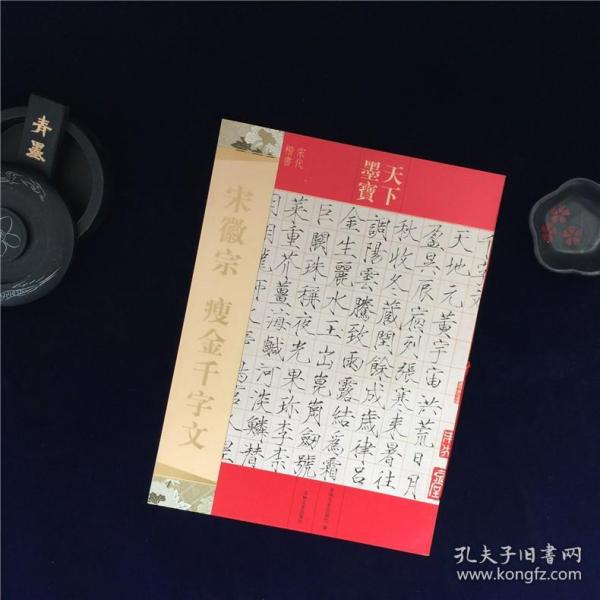 青墨
宋代
楷書
天下
墨寶
宋徽宗 瘦金千字文
千字文
天地元黃宇宙洪荒日月
盈昃辰宿列張寒來暑往
秋收冬藏閏餘成歲律呂
調陽雲騰致雨露結爲霜
金生麗水玉出崑崗劒號
巨闕珠稱夜光果珍李柰
菜重芥薑海鹹河淡鱗替
孔夫子旧书网
www.kongfz.com